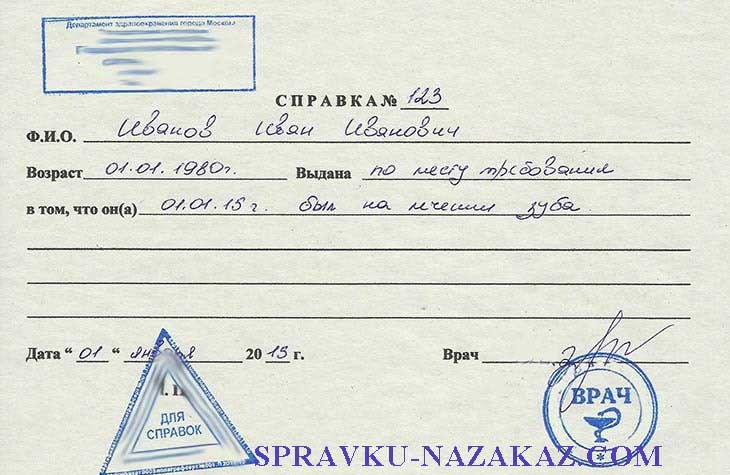 Департамент здравоохранения города Москвы
СПРАВКА № 123
Ф.И.О. Иванов Иван Иванович
Возраст 01.01.1980г. Выдана по месту требования
в том, что он(а) 01.01.15 г. был на лечении зуба
Дата “ 01 “ января 20 15 г. Врач
ДЛЯ
СПРАВОК
ВРАЧ
SPRAVKU-NAZAKAZ.COM